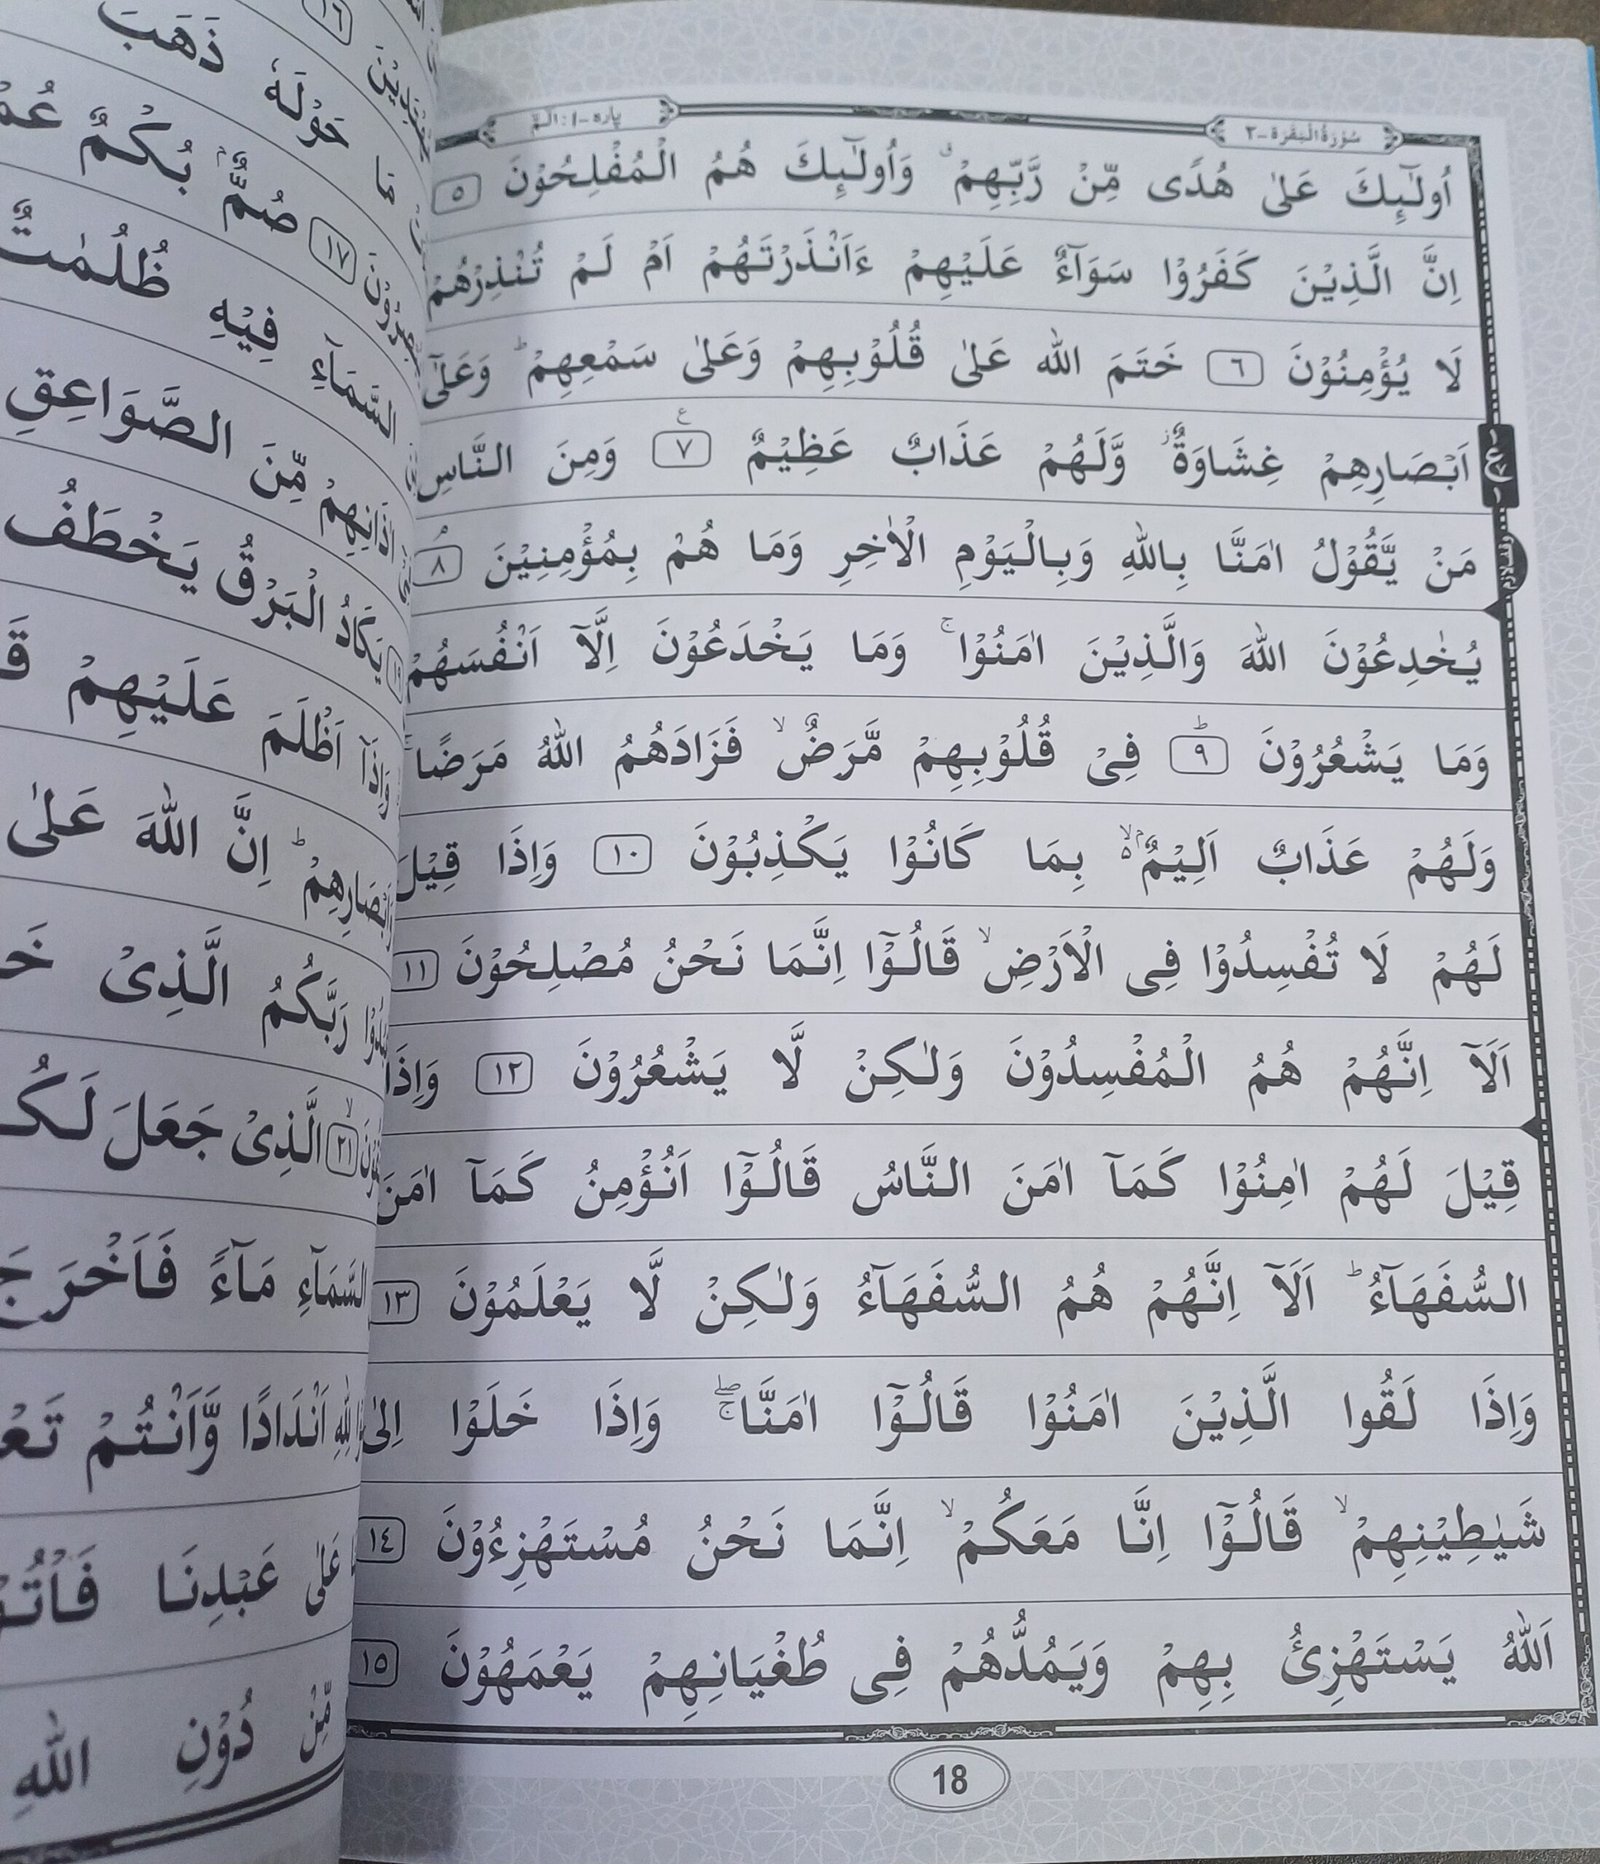 سُوۡرَةُ الۡبَقَرَة -٢
پاره -١: الٓمّٓ
اُولٰٓئِكَ عَلٰى هُدًى مِّنۡ رَّبِّهِمۡ ۙ وَاُولٰٓئِكَ هُمُ الۡمُفۡلِحُوۡنَ ٥
اِنَّ الَّذِيۡنَ كَفَرُوۡا سَوَآءٌ عَلَيۡهِمۡ ءَاَنۡذَرۡتَهُمۡ اَمۡ لَمۡ تُنۡذِرۡهُمۡ
لَا يُؤۡمِنُوۡنَ ٦ خَتَمَ اللّٰه عَلٰى قُلُوۡبِهِمۡ وَعَلٰى سَمۡعِهِمۡ ؕ وَعَلٰٓى
اَبۡصَارِهِمۡ غِشَاوَةٌ ؗ وَّلَهُمۡ عَذَابٌ عَظِيۡمٌ ٧ وَمِنَ النَّاسِ
مَنۡ يَّقُوۡلُ اٰمَنَّا بِاللّٰهِ وَبِالۡيَوۡمِ الۡاٰخِرِ وَمَا هُمۡ بِمُؤۡمِنِيۡنَ ٨
يُخٰدِعُوۡنَ اللّٰهَ وَالَّذِيۡنَ اٰمَنُوۡا ۚ وَمَا يَخۡدَعُوۡنَ اِلَّاۤ اَنۡفُسَهُمۡ
وَمَا يَشۡعُرُوۡنَ ؕ ٩ فِىۡ قُلُوۡبِهِمۡ مَّرَضٌ ۙ فَزَادَهُمُ اللّٰهُ مَرَضًا ۚ
وَلَهُمۡ عَذَابٌ اَلِيۡمٌۢ ۙ بِمَا كَانُوۡا يَكۡذِبُوۡنَ ١٠ وَاِذَا قِيۡلَ
لَهُمۡ لَا تُفۡسِدُوۡا فِى الۡاَرۡضِ ۙ قَالُوۡٓا اِنَّمَا نَحۡنُ مُصۡلِحُوۡنَ ١١
اَلَاۤ اِنَّهُمۡ هُمُ الۡمُفۡسِدُوۡنَ وَلٰكِنۡ لَّا يَشۡعُرُوۡنَ ١٢ وَاِذَا
قِيۡلَ لَهُمۡ اٰمِنُوۡا كَمَاۤ اٰمَنَ النَّاسُ قَالُوۡٓا اَنُؤۡمِنُ كَمَاۤ اٰمَنَ
السُّفَهَآءُ ؕ اَلَاۤ اِنَّهُمۡ هُمُ السُّفَهَآءُ وَلٰكِنۡ لَّا يَعۡلَمُوۡنَ ١٣
وَاِذَا لَقُوا الَّذِيۡنَ اٰمَنُوۡا قَالُوۡٓا اٰمَنَّا ۖۚ وَاِذَا خَلَوۡا اِلٰى
شَيٰطِيۡنِهِمۡ ۙ قَالُوۡٓا اِنَّا مَعَكُمۡ ۙ اِنَّمَا نَحۡنُ مُسۡتَهۡزِءُوۡنَ ١٤
اَللّٰهُ يَسۡتَهۡزِئُ بِهِمۡ وَيَمُدُّهُمۡ فِى طُغۡيَانِهِمۡ يَعۡمَهُوۡنَ ١٥
18
١٦
حَوۡلَهٗ ذَهَبَ
١٧ صُمٌّۢ بُكۡمٌ
السَّمَآءِ فِيۡهِ ظُلُمٰتٌ
اٰذَانِهِمۡ مِّنَ الصَّوَاعِقِ
يَكَادُ الۡبَرۡقُ يَخۡطَفُ
وَاِذَاۤ اَظۡلَمَ عَلَيۡهِمۡ
ؕ اِنَّ اللّٰهَ عَلٰى
رَبَّكُمُ الَّذِىۡ
٢١ الَّذِىۡ جَعَلَ
السَّمَآءِ مَآءً فَاَخۡرَجَ
لِلّٰهِ اَنۡدَادًا وَّاَنۡتُمۡ
عَلٰى عَبۡدِنَا
مِّنۡ دُوۡنِ اللّٰهِ